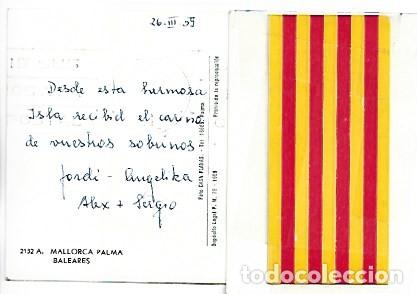 26-III-59
Desde esta hermosa
Isla recibid el cariño
de vuestros sobrinos
Jordi - Angelika
Alex + Sergio
2132 A. MALLORCA PALMA
BALEARES
Foto CASA PLANAS. - Tel. Palma
Prohibida la reproducción
Depósito Legal P. M. 1959
todocoleccion.net